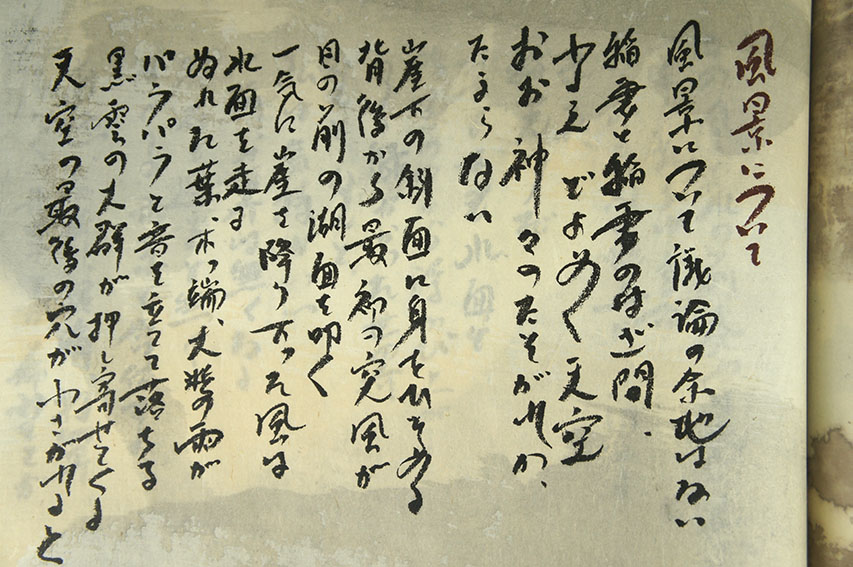 風景について
風景について議論の余地はない
稲妻と稲妻のはざ間、
ふるえどよめく天空
おお 神々のたそがれか、
たまらない
崖下の斜面に身をひそめる
背後から最初の突風が
目の前の湖面を叩く
一気に崖を降り下った風は
水面を走る
ぬれた葉、木っ端、大粒の雨が
バラバラと音を立てて落ちる
黒雲の大群が押し寄せてくる
天空の最後の穴がふさがると